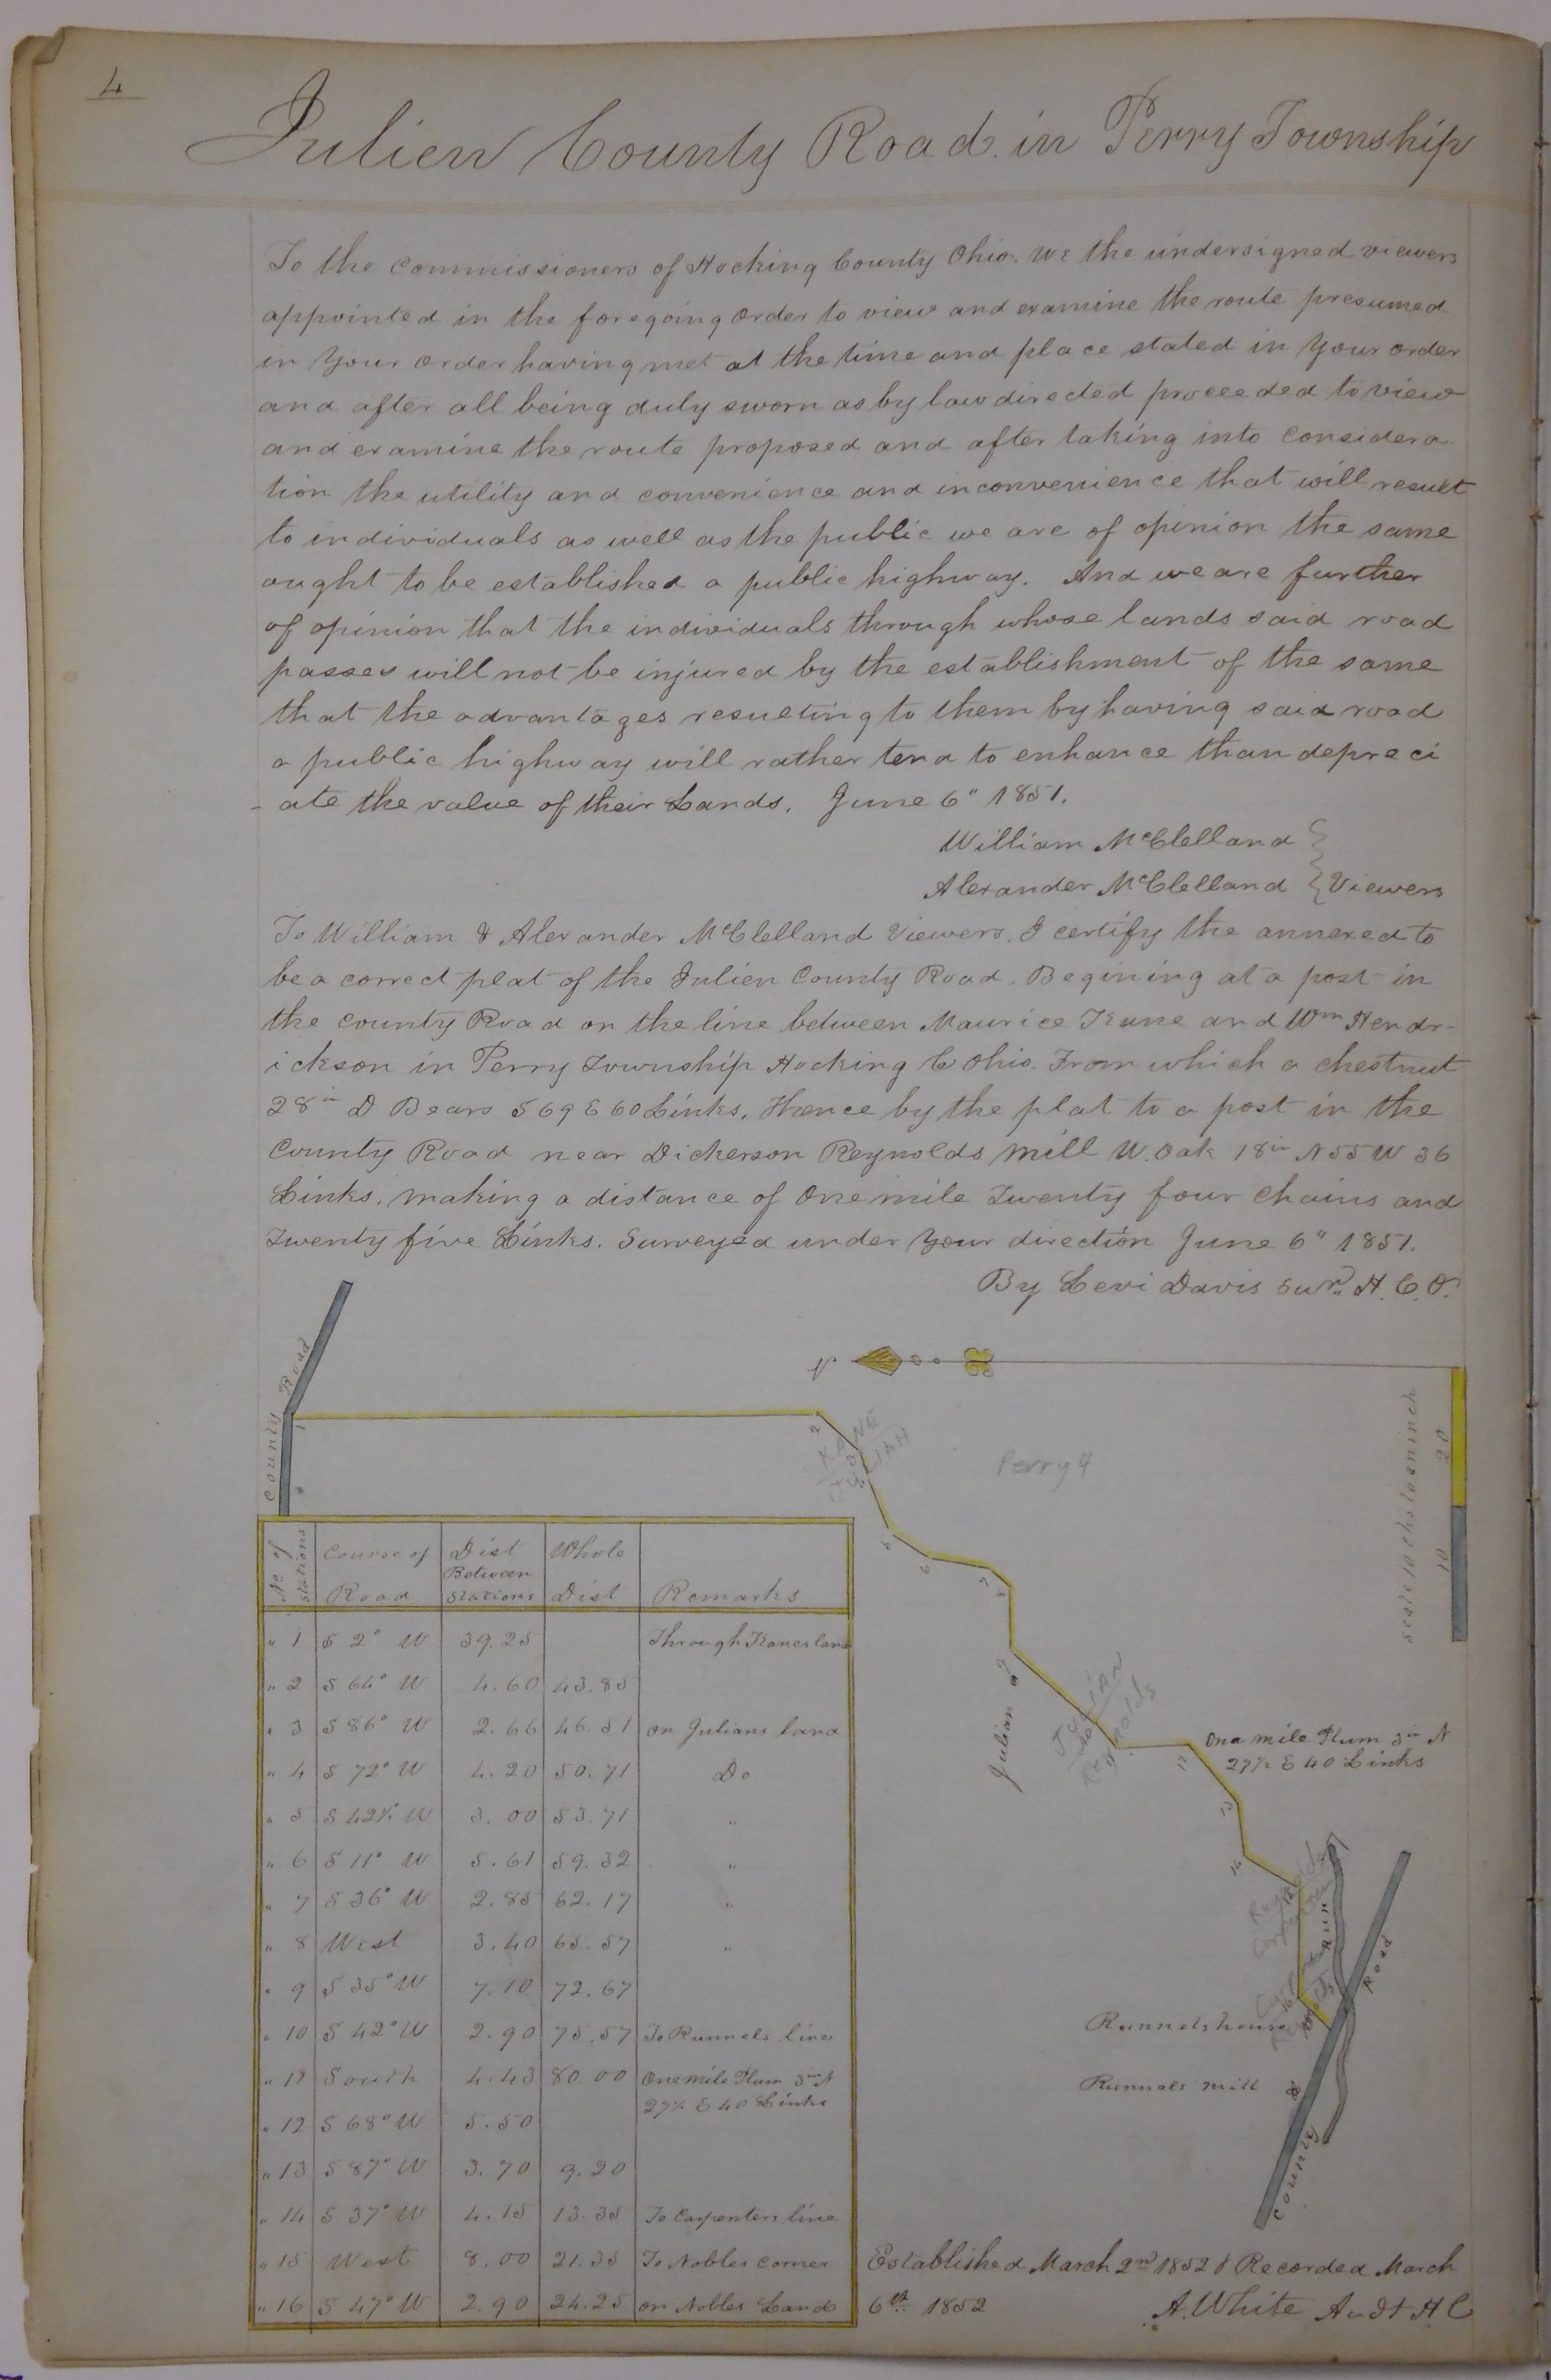 4
Julien County Road in Perry Township
To the Commissioners of Hocking County Ohio. We the undersigned viewers
appointed in the foregoing order to view and examine the route presumed
in Your order having met at the time and place stated in Your order
and after all being duly sworn as by law directed proceeded to view
and examine the route proposed and after taking into considera
tion the utility and convenience and inconvenience that will result
to individuals as well as the public we are of opinion the same
ought to be established a public highway. And we are further
of opinion that the individuals through whose lands said road
passes will not be injured by the establishment of the same
that the advantages resulting to them by having said road
a public highway will rather tend to enhance than depreci
- ate the value of their Lands. June 6" 1851.
William McClelland
Alexander McClelland } Viewers
To William & Alexander McClelland Viewers. I certify the annexed to
be a correct plat of the Julien County Road. Begining at a post in
the County Road on the line between Maurice Kane and Wm Hendr-
ickson in Perry Township Hocking C Ohio. From which a chestnut
28 in D Bears S 69 E 60 Links, Thence by the plat to a post in the
County Road near Dickerson Reynolds Mill W. Oak 18 in N 55 W 36
Links, making a distance of One mile Twenty four Chains and
Twenty five Links. Surveyed under Your direction June 6" 1851.
By Levi Davis Sur. H. C. O.
County Road
N
1
2
KANE
JULIAN
Perry 4
5
6
7
8
9
Julian
JULIAN
Reynolds
12
One mile Plum 3 in N
27½ E 40 Links
13
14
Reynolds
Carpenter
Run
Runnels house
Runnels mill
County Road
scale 10 chs to an inch
20
10
No of Stations | Course of Road | Dist Between Stations | Whole Dist | Remarks
" 1 | S 2° W | 39.25 | | Through Kanes land
" 2 | S 64° W | 4.60 | 43.85
" 3 | S 86° W | 2.66 | 46.51 | on Julians land
" 4 | S 72° W | 4.20 | 50.71 | Do
" 5 | S 42½ W | 3.00 | 53.71 | "
" 6 | S 11° W | 5.61 | 59.32 | "
" 7 | S 36° W | 2.85 | 62.17 | "
" 8 | West | 3.40 | 65.57 | "
" 9 | S 35° W | 7.10 | 72.67
" 10 | S 42° W | 2.90 | 75.57 | To Runnels line
" 11 | South | 4.43 | 80.00 | One mile Plum 3 in N
27½ E 40 Links
" 12 | S 68° W | 5.50
" 13 | S 87° W | 3.70 | 9.20
" 14 | S 37° W | 4.15 | 13.35 | To Carpenters line
" 15 | West | 8.00 | 21.35 | To Nobles corner
" 16 | S 47° W | 2.90 | 24.25 | on Nobles Land
Established March 2nd 1852 & Recorded March
6th 1852 A. White Audt H C